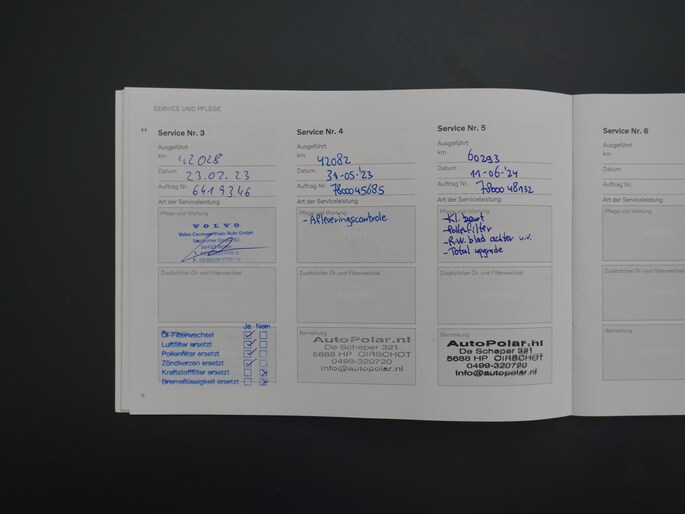 SERVICE UND PFLEGE
44
Service Nr. 3
Ausgeführt
km 42028
Datum 23.02.23
Auftrag Nr. 6419346
Art der Serviceleistung
Pflege und Wartung
VOLVO
Zusätzlicher Öl- und Filterwechsel
Ja Nein
Öl-Filterwechsel
Luftfilter ersetzt
Pollenfilter ersetzt
Zündkerzen ersetzt
Kraftstofffilter ersetzt
Bremsflüssigkeit ersetzt
Service Nr. 4
Ausgeführt
km 42082
Datum 31-05-'23
Auftrag Nr. 7800045685
Art der Serviceleistung
Pflege und Wartung
- Afleveringscontrole
Zusätzlicher Öl- und Filterwechsel
Bemerkung
AutoPolar.nl
De Scheper 321
5688 HP OIRSCHOT
0499-320720
info@autopolar.nl
Service Nr. 5
Ausgeführt
km 60293
Datum 11-06-'24
Auftrag Nr. 7800048132
Art der Serviceleistung
Pflege und Wartung
- Kl. beurt
- Pollenfilter
- R.w. blad achter v.v.
- Total upgrade
Zusätzlicher Öl- und Filterwechsel
Bemerkung
AutoPolar.nl
De Scheper 321
5688 HP OIRSCHOT
0499-320720
info@autopolar.nl
Service Nr. 6
Ausgeführt
km
Datum
Auftrag Nr.
Art der Serviceleistung
Pflege und Wartung
Zusätzlicher Öl- und
Bemerkung